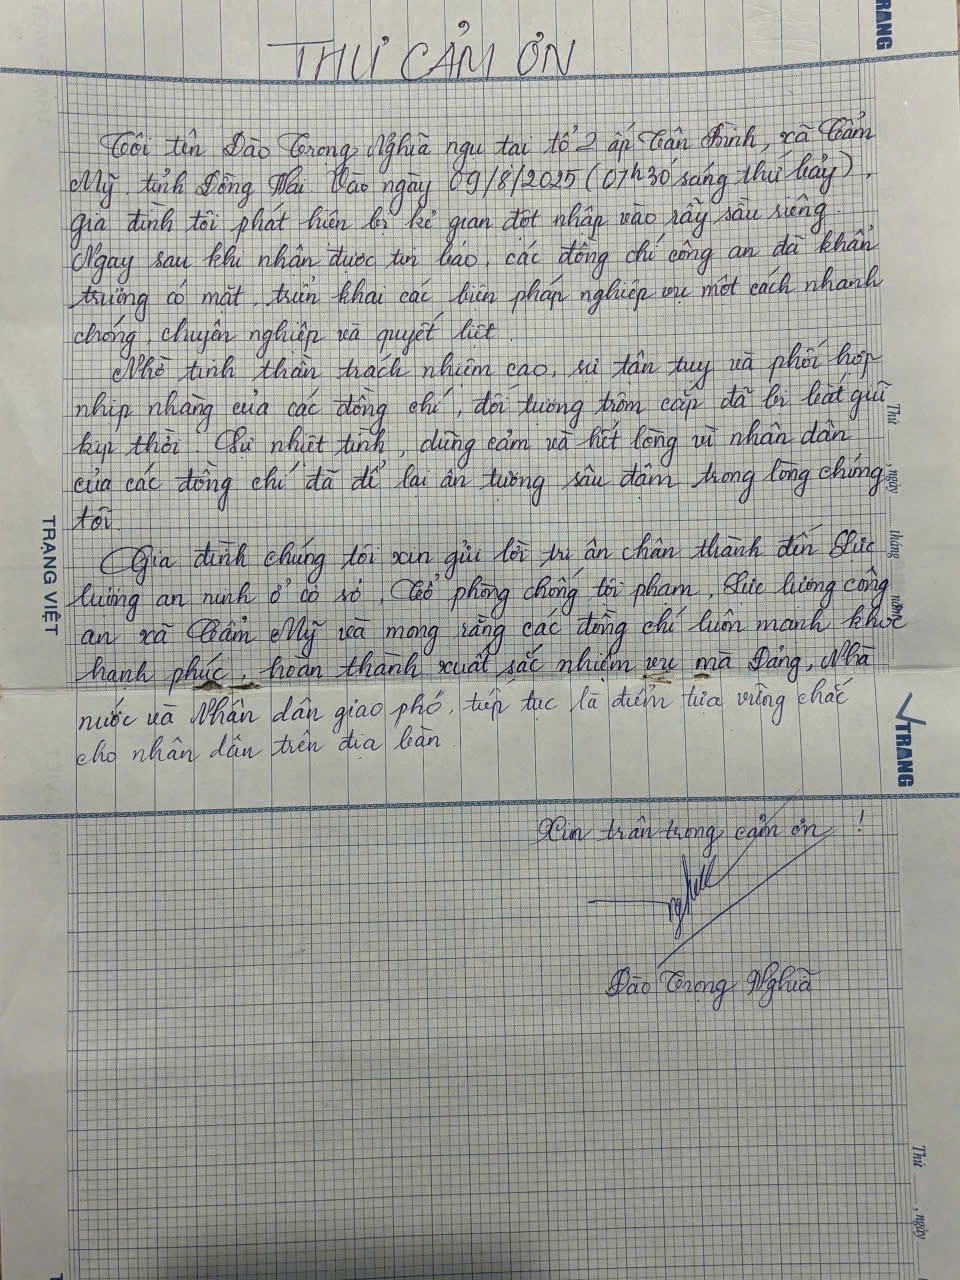 TRANG
THƯ CẢM ƠN
Tôi tên Đào Trọng Nghĩa ngụ tại tổ 2 ấp Tân Bình, xã Cẩm
Mỹ, tỉnh Đồng Nai. Vào ngày 09/8/2025 (07h30 sáng thứ bảy),
gia đình tôi phát hiện bị kẻ gian đột nhập vào rẫy sầu riêng.
Ngay sau khi nhận được tin báo, các đồng chí công an đã khẩn
trương có mặt, triển khai các biện pháp nghiệp vụ một cách nhanh
chóng, chuyên nghiệp và quyết liệt.
Nhờ tinh thần trách nhiệm cao, sự tận tụy và phối hợp
nhịp nhàng của các đồng chí, đối tượng trộm cắp đã bị bắt giữ
kịp thời. Sự nhiệt tình, dũng cảm và hết lòng vì nhân dân
của các đồng chí đã để lại ấn tượng sâu đậm trong lòng chúng
tôi.
Gia đình chúng tôi xin gửi lời tri ân chân thành đến Lực
lượng an ninh ở cơ sở, Tổ phòng chống tội phạm, Lực lượng công
an xã Cẩm Mỹ và mong rằng các đồng chí luôn mạnh khỏe
hạnh phúc, hoàn thành xuất sắc nhiệm vụ mà Đảng, Nhà
nước và Nhân dân giao phó, tiếp tục là điểm tựa vững chắc
cho nhân dân trên địa bàn.
Xin trân trọng cảm ơn !
Nghĩa
Đào Trọng Nghĩa
TRANG VIỆT
Thứ , ngày tháng năm
VTRANG
Thứ , ngày
T